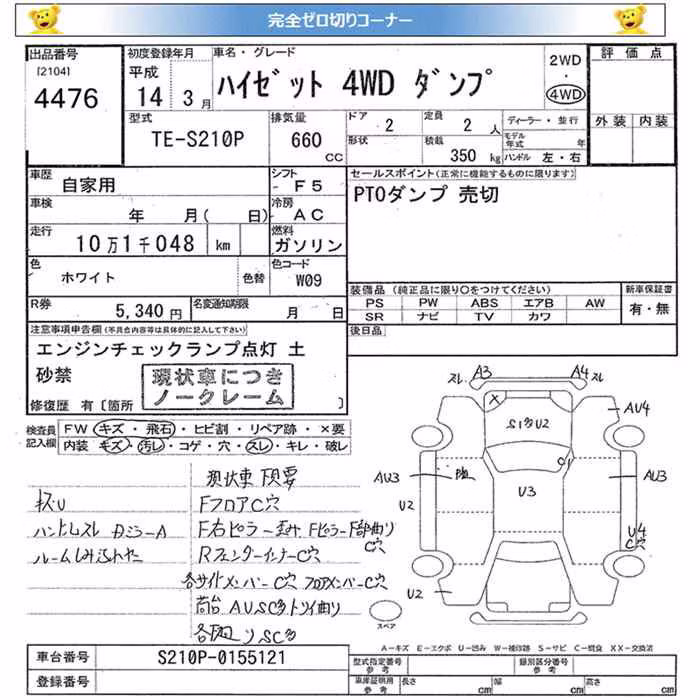 完全ゼロ切りコーナー
出品番号
[2104]
4476
初度登録年月
平成
14 3月
車名・グレード
ハイゼット 4WD ダンプ
2WD
・
4WD
評価点
外装 内装
型式
TE-S210P
排気量
660
CC
ドア
2
形状
定員
2 人
積載
350 kg
ディーラー・並行
モデル
年式 年
ハンドル 左・右
車歴
自家用
シフト
F5
車検
年 月( 日)
冷房
AC
走行
10万1千048 km
燃料
ガソリン
色
ホワイト
色替
色コード
W09
R券
5,340円
名変通知期限
月 日
セールスポイント(正常に機能するものに限ります)
PTOダンプ 売切
装備品(純正品に限り○をつけてください)
PS PW ABS エアB AW
SR ナビ TV カワ
新車保証書
有・無
後日品
注意事項申告欄(不具合内容等は具体的に記入して下さい)
エンジンチェックランプ点灯 土
砂禁
現状車につき
ノークレーム
修復歴 有〔箇所
検査員
記入欄
FW キズ・飛石・ヒビ割・リペア跡・×要
内装 キズ・汚レ・コゲ・穴・スレ・キレ・破レ
現状車 下見要
キズU
FフロアC穴
ハンドルスレ
ルーム
RフェンダーインナーC穴
各サイドメンバーC穴 フロアメンバーC穴
荷台 AUSC多
スレ A3 A4 スレ
X
S1多U2
AU4
AU3
U3
AU3
U2
U4
C穴
U2
スペア
A−キズ E−エクボ U−凹み W−補修跡 S−サビ C−腐食 XX−交換済
車台番号
S210P-0155121
登録番号
型式指定番号
参考
類別区分番号
参考
車庫証明用
参考
長さ cm
幅 cm
高さ cm